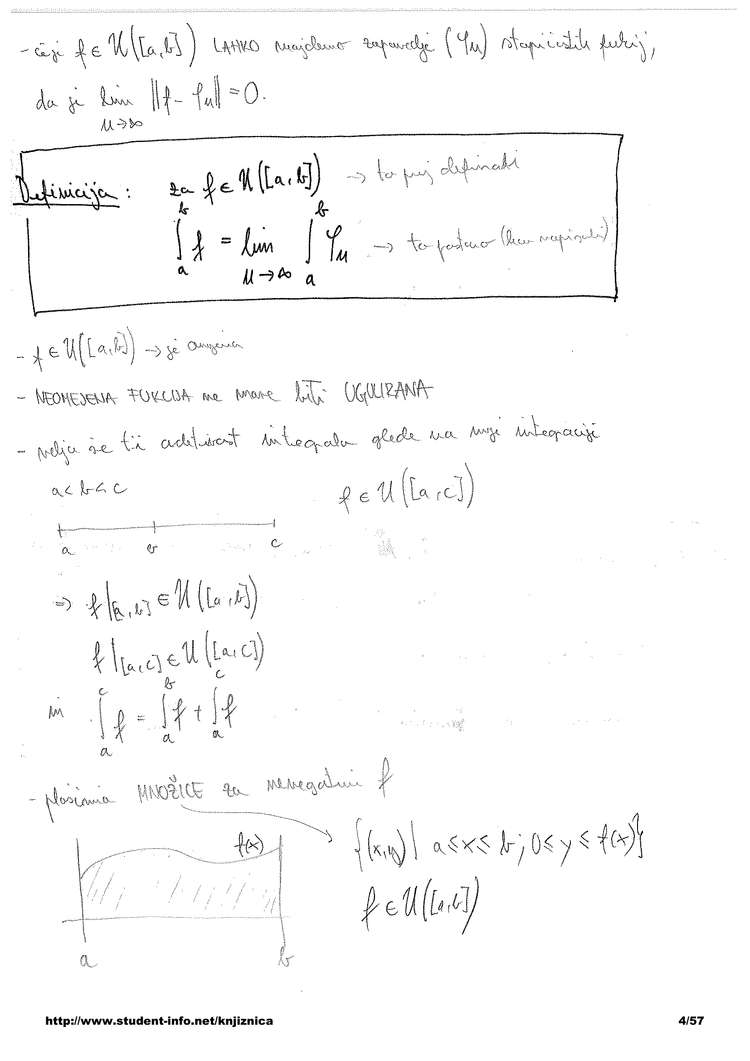 - če je f ∈ U([a,b]) LAHKO najdemo zaporedje (φn) stopničastih fukcij,
da je lim ‖f - φn‖ = 0.
n→∞
Definicija: za f ∈ U([a,b]) → to prej definirali
∫_a^b f = lim_{n→∞} ∫_a^b φn → to
- f ∈ U([a,b]) → je omejena
- NEOMEJENA FUKCIJA ne more biti UGULIRANA
- velja še t.i. aditivnost integrala glede na meji integracije
a<b<c f ∈ U([a,c])
a b c
⇒ f|[a,b] ∈ U([a,b])
f|[a,c] ∈ U([a,c])
in ∫_a^c f = ∫_a^b f + ∫_a^c f
- ploščina MNOŽICE za nenegativni f
f(x) {(x,y) | a≤x≤b; 0≤y≤f(x)}
f ∈ U([a,b])
a b
http://www.student-info.net/knjiznica 4/57